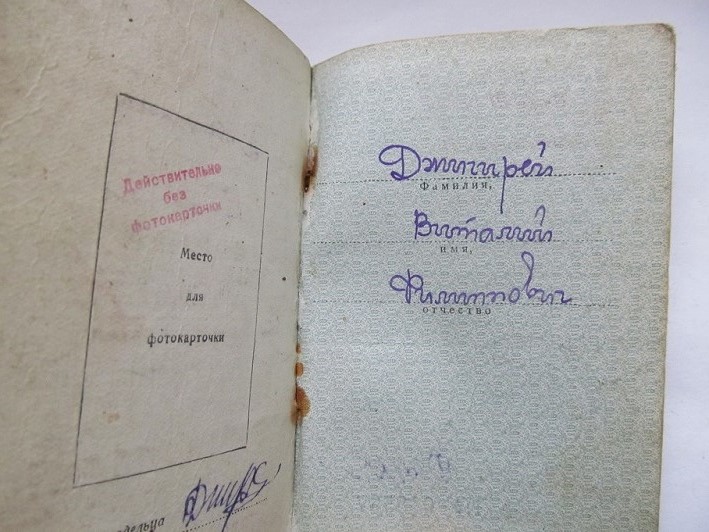 Действительно
без
фотокарточки
Место
для
фотокарточки
Джигирей
Фамилия,
Виталий
имя,
Филиппович
отчество